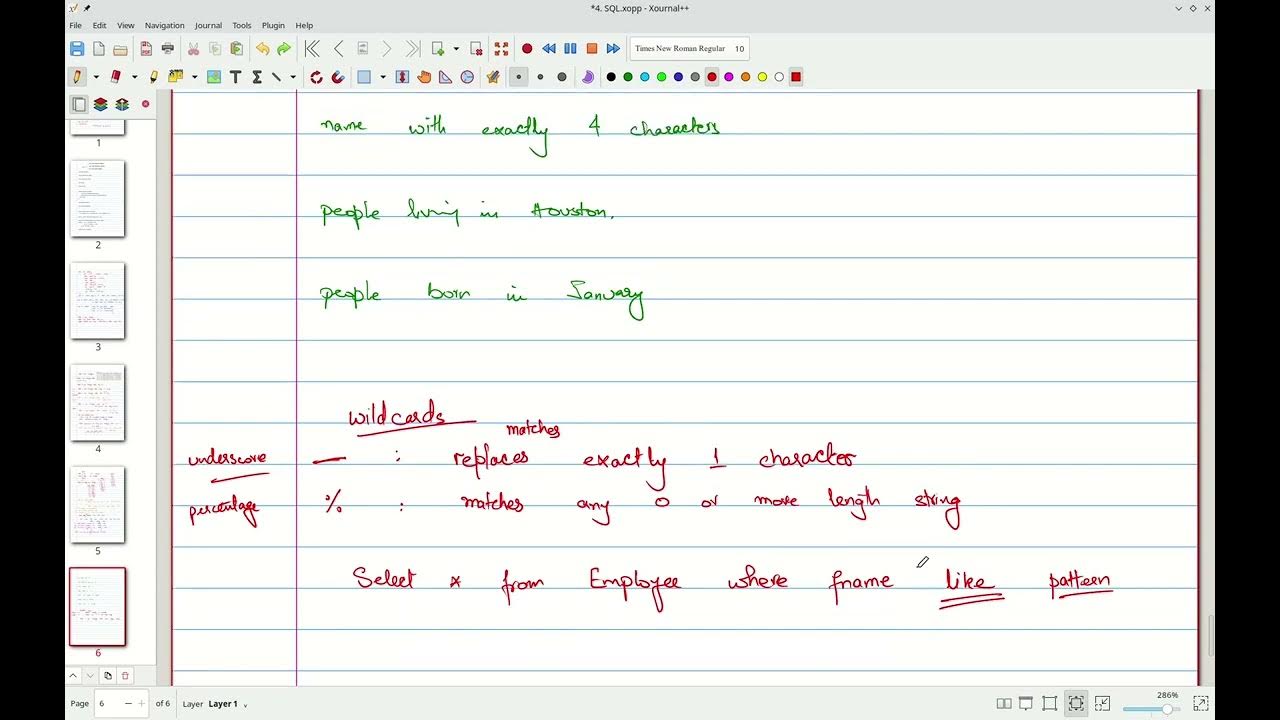 *4. SQL.xopp - Xournal++
File Edit View Navigation Journal Tools Plugin Help
Times New Roman Regular 10
1
2
3
4
5
6
name with exactly 4 characters
people living in Houston.
people born in January
wildcards
matches
underscore — : replaces exactly 1 character
percentage % : matches any 0 or more length string
Select * from Employee where fname like pattern
Page 6 of 6 Layer Layer 1
286%